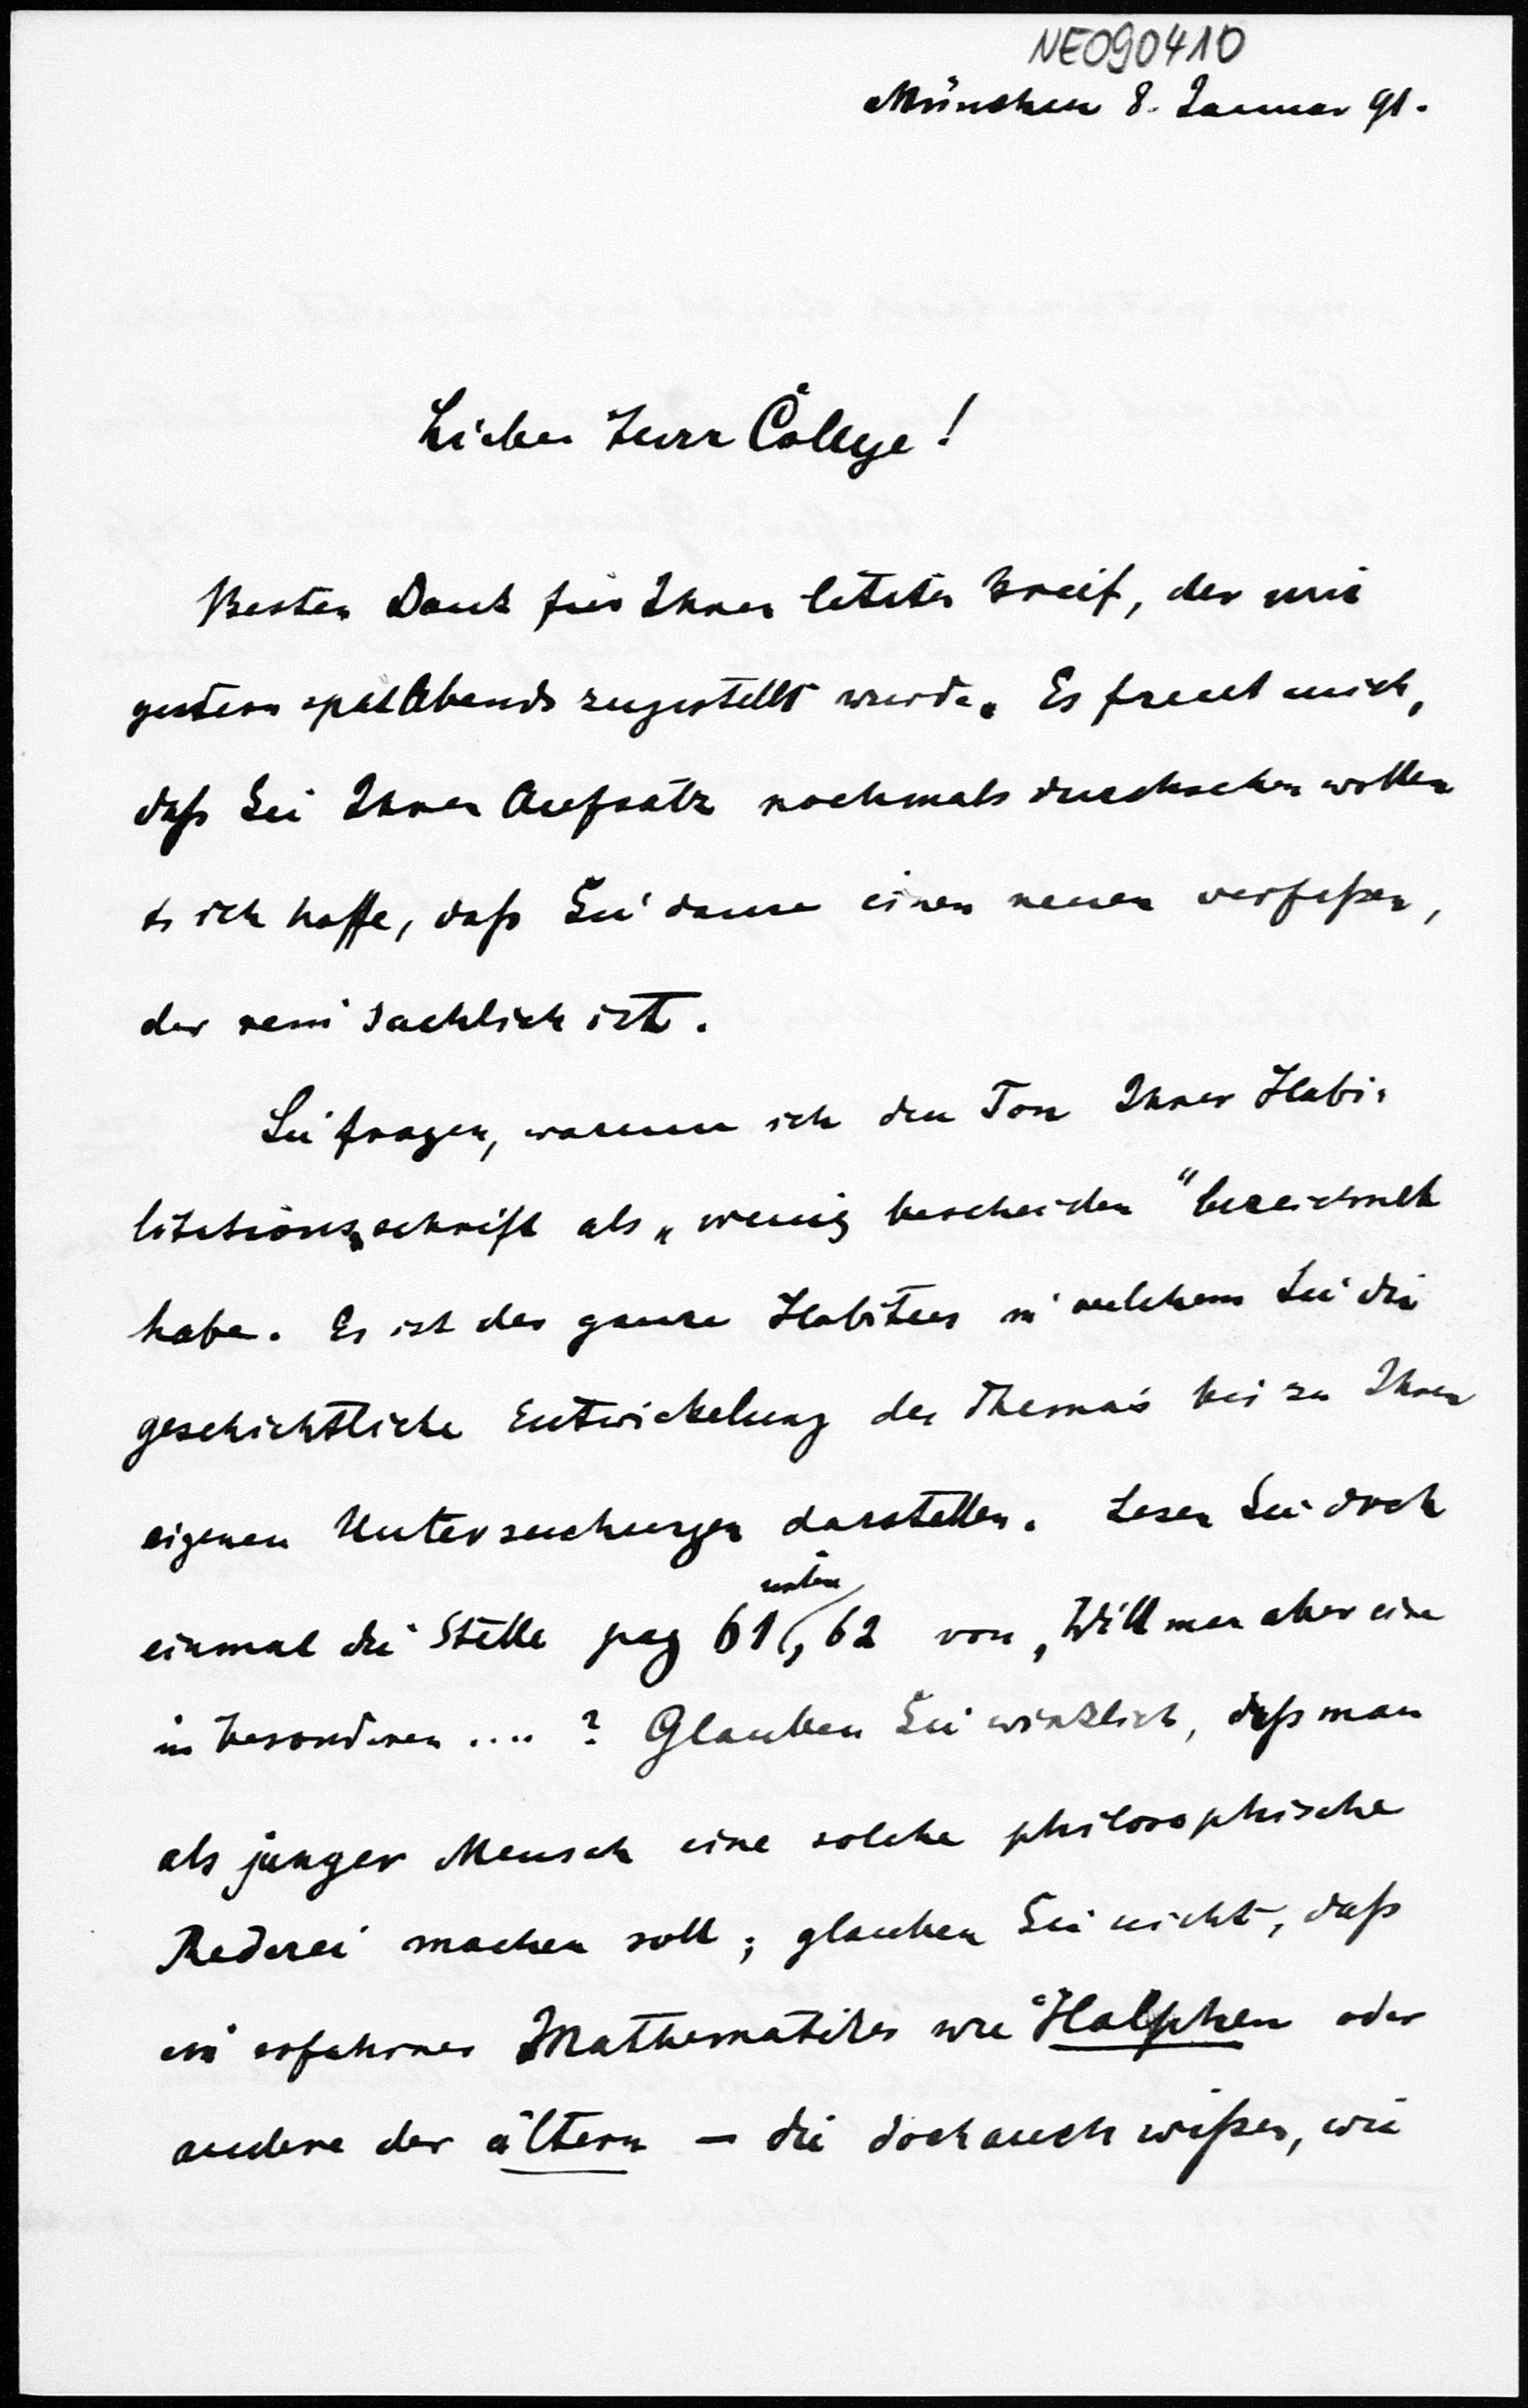 NE090410
München 8. Januar 91.
Lieber Herr College!
Besten Dank für Ihren letzten Brief, der mir
gestern spät Abends zugestellt wurde. Es freut mich,
daß Sie Ihren Aufsatz nochmals durchsehen wollen
& ich hoffe, daß Sie dann einen neuen verfaßen,
der rein sachlich ist.
Sie fragen, warum ich den Ton Ihrer Habi-
litationsschrift als „wenig bescheiden“ bezeichnet
habe. Es ist der ganze Habitus in welchem Sie die
geschichtliche Entwickelung des Themas bis zu Ihren
eigenen Untersuchungen darstellen. Lesen Sie doch
unten
einmal die Stelle pag 61, 62 von „Will man aber eine
im besonderen .... ? Glauben Sie wirklich, daß man
als junger Mensch eine solche philosophische
Rederei machen soll; glauben Sie nicht, daß
ein erfahrner Mathematiker wie Halphen oder
andere der ältern – die doch auch wißen, wie